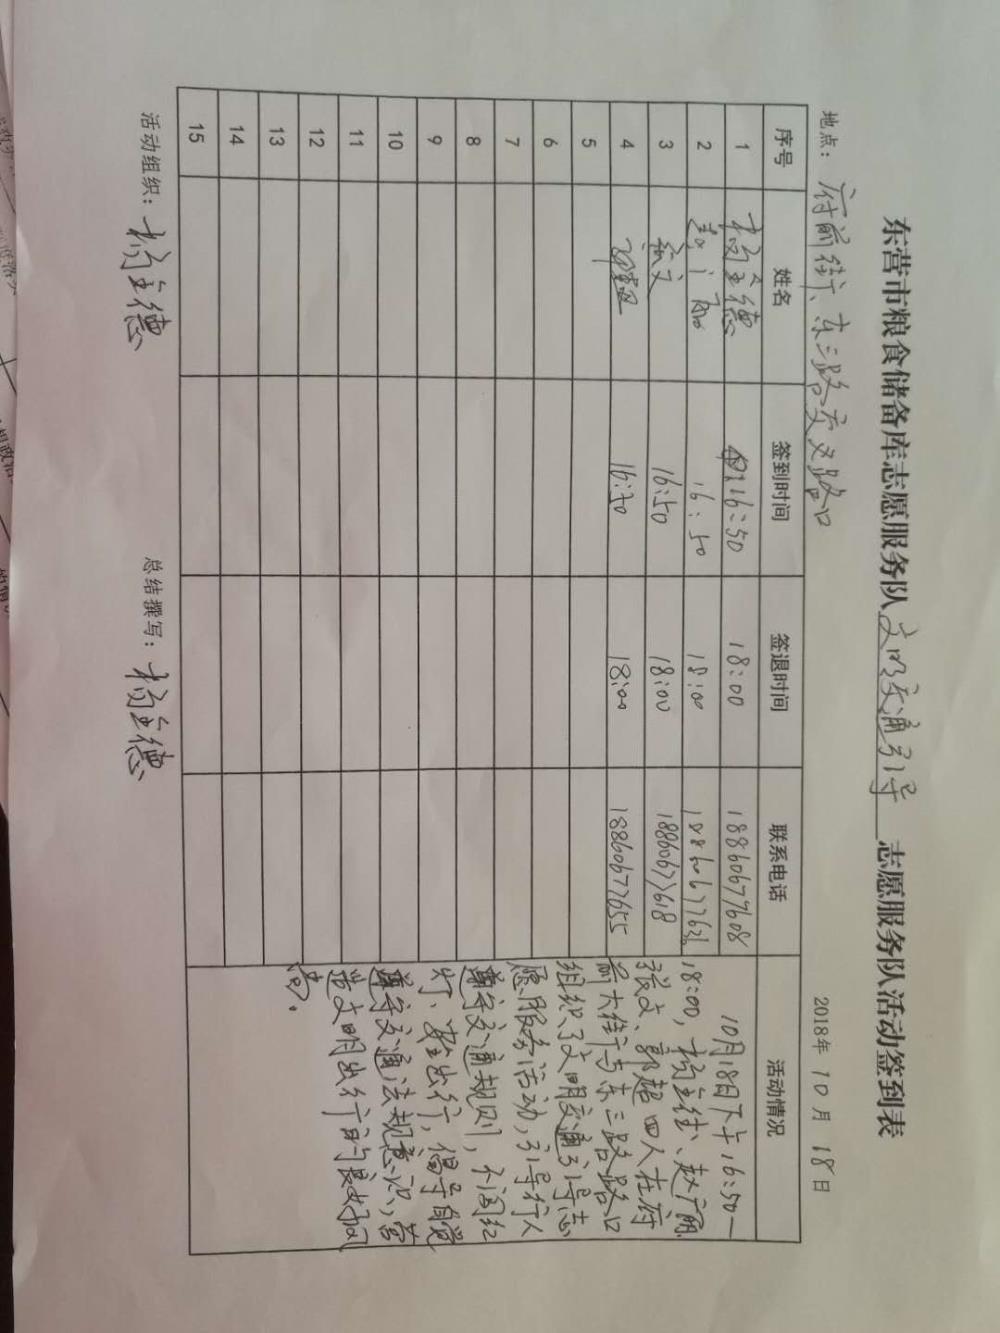 东营市粮食储备库志愿服务队文明交通引导志愿服务队活动签到表
地点：府前街、东三路交叉路口 2018年10月18日
序号 姓名 签到时间 签退时间 联系电话 活动情况
1 杨圭德 16:50 18:00 18860677608
2 16:50 18:00 18860677631
3 张文 16:50 18:00 18860677618
4 16:50 18:00 18860677655
5
6
7
8
9
10
11
12
13
14
15
10月18日下午16:50—
18:00，杨圭德、赵广丽、
张文、郭超四人在府
前大街与东三路路口
组织了文明交通引导志
愿服务活动，引导行人
遵守交通规则，不闯红
灯、安全出行，倡导自觉
遵守交通法规意识，营
造文明出行的良好风
尚。
活动组织：杨圭德 总结撰写：杨圭德